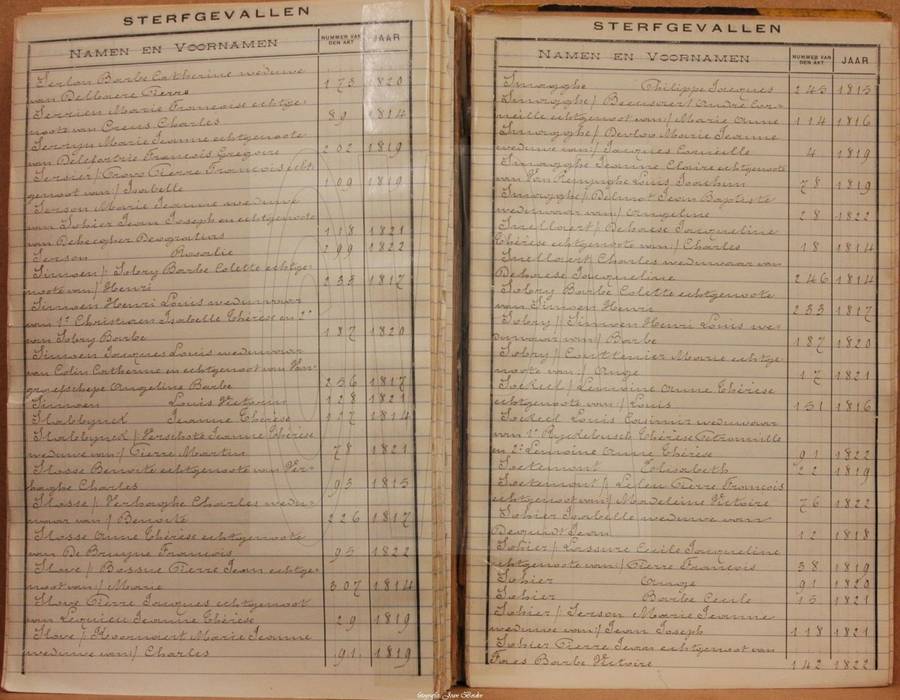 STERFGEVALLEN
NAMEN EN VOORNAMEN NUMMER VAN DEN AKT JAAR
Serlon Barbe Catherine weduwe
van Delbaere Pierre 173 1820
Serrien Marie Françoise echtge-
noote van Creus Charles 89 1814
Serryn Marie Jeanne echtgenoote
van Delefortrie François Grégoire 202 1819
Sersier / Crops Pierre François echt-
genoot van / Isabelle 109 1819
Serson Marie Jeanne weduwe
van Sohier Jean Joseph en echtgenoote
van Debecgher Deogratius 118 1821
Serson Rosalie 299 1822
Simoen / Solry Barbe Colette echtge-
noote van / Henri 233 1817
Simoen Henri Louis weduwaar
van 1° Christiaen Isabelle Thérèse en 2°
van Solry Barbe 187 1820
Simoen Jacques Louis weduwaar
van Colin Catherine en echtgenoot van Van-
graefschepe Angeline Barbe 256 1817
Simoen Louis Victorin 128 1821
Slabbynck Jeanne Thérèse 117 1814
Slabbynck / Verschate Jeanne Thérèse
weduwe van / Pierre Martin 78 1821
Slosse Benoite echtgenoote van Ver-
haeghe Charles 93 1815
Slosse / Verhaeghe Charles wedu-
waar van / Benoite 226 1817
Slosse Anne Thérèse echtgenoote
van De Bruyne François 95 1822
Slove / Bossue Pierre Jean echtge-
noot van / Marie 307 1814
Slove Pierre Jacques echtgenoot
van Lequieu Jeanne Thérèse 29 1819
Slove / Kesermaert Marie Jeanne
weduwe van / Charles 91 1819
STERFGEVALLEN
NAMEN EN VOORNAMEN NUMMER VAN DEN AKT JAAR
Smagghe Philippe Jacques 245 1815
Smagghe / Beeusaert André Cor-
neille echtgenoot van / Marie Anne 114 1816
Smagghe / Devloo Marie Jeanne
weduwe van / Jacques Corneille 4 1819
Smagghe Jeanne Claire echtgenoote
van Van Kempighe Louis Joachim 78 1819
Smagghe / Delmot Jean Baptiste
weduwaar van / Angeline 28 1822
Snellaert / Dehaese Jacqueline
Thérèse echtgenoote van / Charles 18 1814
Snellaert Charles weduwaar van
Dehaese Jacqueline 246 1814
Solry Barbe Colette echtgenoote
van Simoen Henri 233 1817
Solry / Simoen Henri Louis we-
duwaar van / Barbe 187 1820
Solry / Couttenier Marie echtge-
noote van / Ange 17 1821
Soekeel / Lemoine Anne Thérèse
echtgenoote van / Louis 151 1816
Soekeel Louis Casimir weduwaar
van 1° Ryckebusch Thérèse Pétronille
en 2° Lemoine Anne Thérèse 91 1822
Soetemont Elisabeth 22 1819
Soetemont / Leleu Pierre François
echtgenoot van / Madeleine Victoire 76 1822
Sohier Isabelle weduwe van
Dequidt Jean 12 1818
Sohier / Lassure Cécile Jacqueline
echtgenoote van / Pierre François 38 1819
Sohier Ange 91 1820
Sohier Barbe Cécile 15 1821
Sohier / Serson Marie Jeanne
weduwe van / Jean Joseph 118 1821
Sohier Pierre Jean echtgenoot van
Faes Barbe Victoire 142 1822